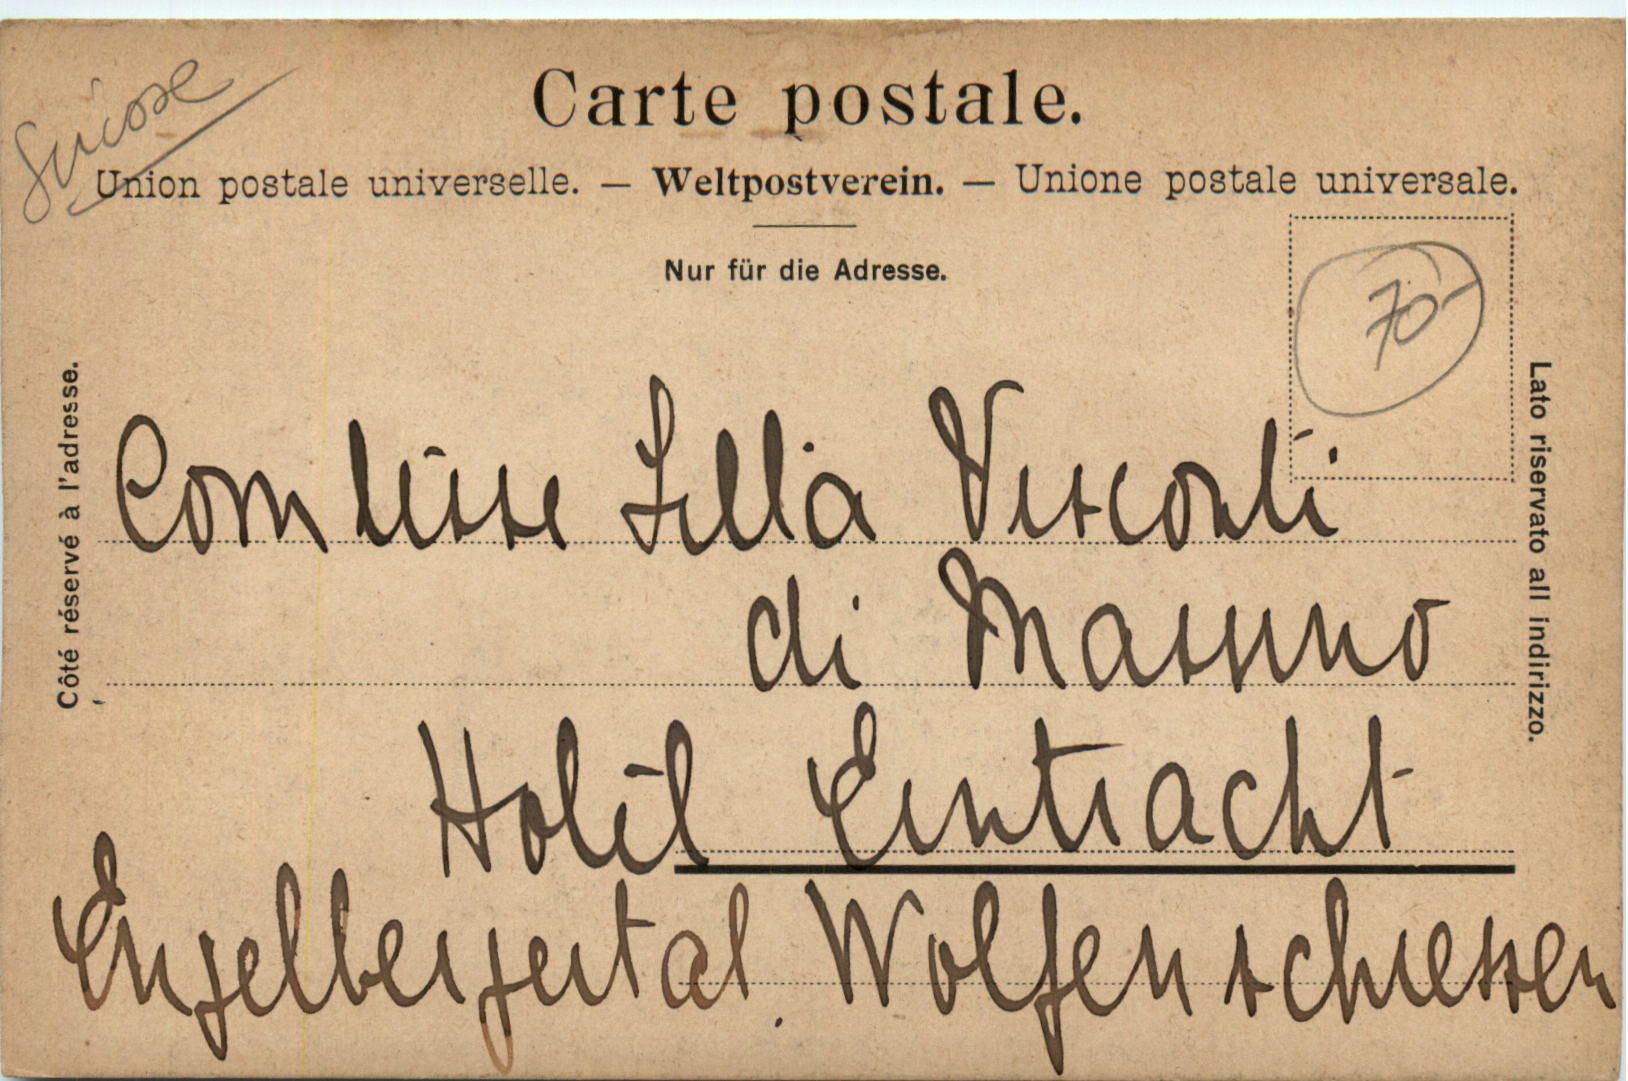 Suisse
Carte postale.
Union postale universelle. — Weltpostverein. — Unione postale universale.
Nur für die Adresse.
70
Côté réservé à l'adresse.
Lato riservato all indirizzo.
Comtesse Lilla Visconti
di Massino
Hotel Eintracht
Engelbergertal. Wolfenschiessen